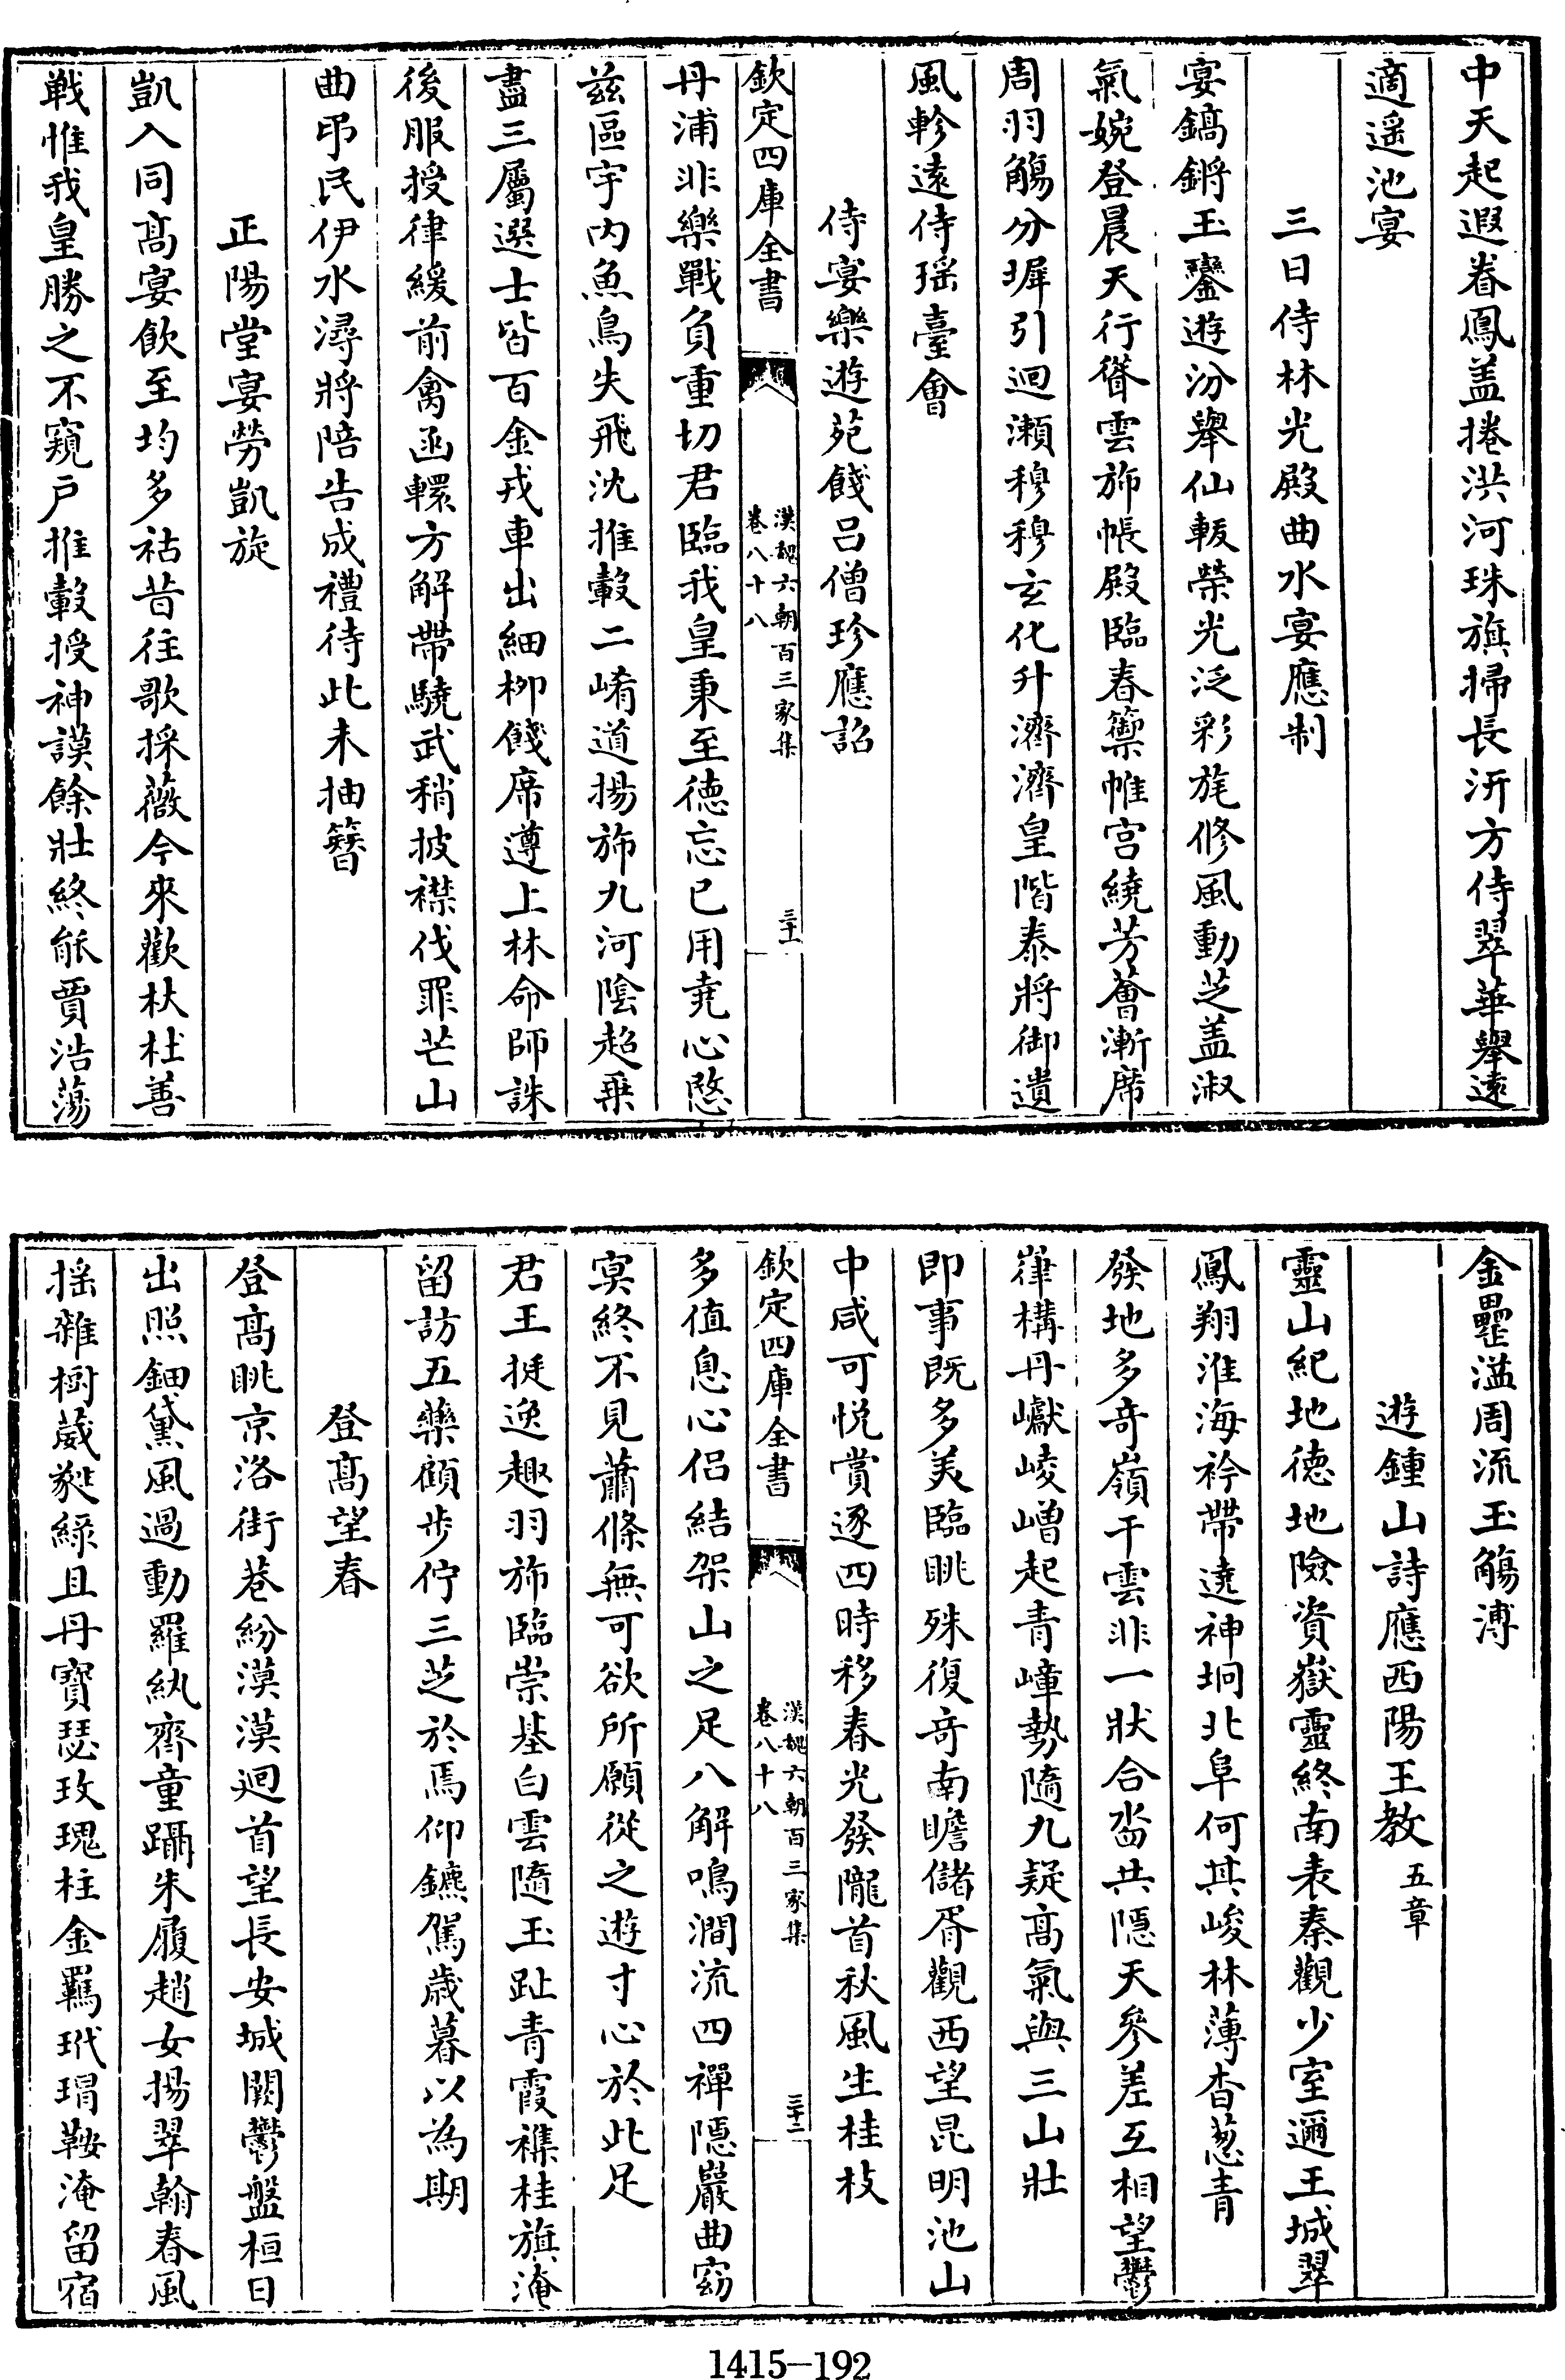 中天起遐眷鳳盖捲洪河珠旗掃長汧方侍翠華舉遠
適遥池宴
三日侍林光殿曲水宴應制
宴鎬鏘玉鑾遊汾舉仙軷榮光泛彩旄修風動芝盖淑
氣婉登晨天行聳雲斾帳殿臨春籞帷宫繞芳薈漸席
周羽觴分墀引迴瀨穆穆玄化升濟濟皇階泰將御遺
風軫遠侍瑶臺會
侍宴樂遊苑餞吕僧珍應詔
欽定四庫全書
漢魏六朝百三家集
卷八十八
三十一
丹浦非樂戰負重切君臨我皇秉至德忘已用堯心愍
兹區宇内魚鳥失飛沈推轂二崤道揚斾九河陰超乗
盡三屬選士皆百金戎車出細柳餞席遵上林命師誅
後服授律緩前禽函轘方解帶驍武稍披襟伐罪芒山
曲弔民伊水潯將陪告成禮待此未抽簪
正陽堂宴勞凱旋
凱入同髙宴飲至均多祜昔往歌採薇今來歡杕杜善
戰惟我皇勝之不窺户推轂授神謨餘壯終能賈浩蕩
金罍溢周流玉觴溥
遊鍾山詩應西陽王教五章
靈山紀地德地險資嶽靈終南表秦觀少室邇王城翠
鳳翔淮海衿帶遶神坰北阜何其峻林薄杳葱青
發地多竒嶺干雲非一狀合沓共隱天參差互相望鬱
嵂構丹巘崚嶒起青嶂勢隨九疑髙氣與三山壯
即事既多美臨眺殊復竒南瞻儲胥觀西望昆明池山
中咸可悦賞逐四時移春光發隴首秋風生桂枝
欽定四庫全書
漢魏六朝百三家集
卷八十八
三十二
多值息心侣結架山之足八解鳴澗流四禪隱巖曲窈
㝠終不見蕭條無可欲所願從之遊寸心於此足
君王挺逸趣羽斾臨崇基白雲隨玉趾青霞襍桂旗淹
留訪五藥顧步佇三芝於焉仰鑣駕歲暮以為期
登髙望春
登髙眺京洛街巷紛漠漠迴首望長安城闕鬱盤桓日
出照鈿黛風過動羅紈齊童躡朱履趙女揚翠翰春風
揺雜樹葳蕤緑且丹寶瑟玫瑰柱金羈玳瑁鞍淹留宿
1415—192